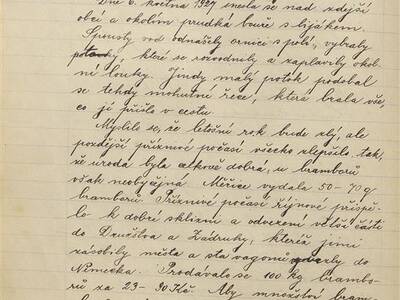 Dne 6. května 1927 snesla se nad zdejší
obcí a okolím prudká bouře s lijákem.
Spousty vod odnášely ornice s polí, vybraly
potoky, které se rozvodnily a zaplavily okol-
ní louky. Jindy malý potok podobal
se tehdy mohutné řece, která brala vše,
co jí přišlo v cestu.
Myslilo se, že letošní rok bude zlý, ale
pozdější příznivé počasí všecko zlepšilo, tak,
že úroda byla celkově dobrá, u bramborů
však neobyčejná. Měřice vydala 50-70 q
bramborů. Příznivé počasí říjnové přispě-
lo k dobré sklizni a odvezení větší části
do Družstva a Zádruhy, kteréž jimi
zásobily města a sta vagonů odvezly do
Německa. Prodávalo se 100 kg brambo-
rů za 23-30 Kč. Aby množství bram-